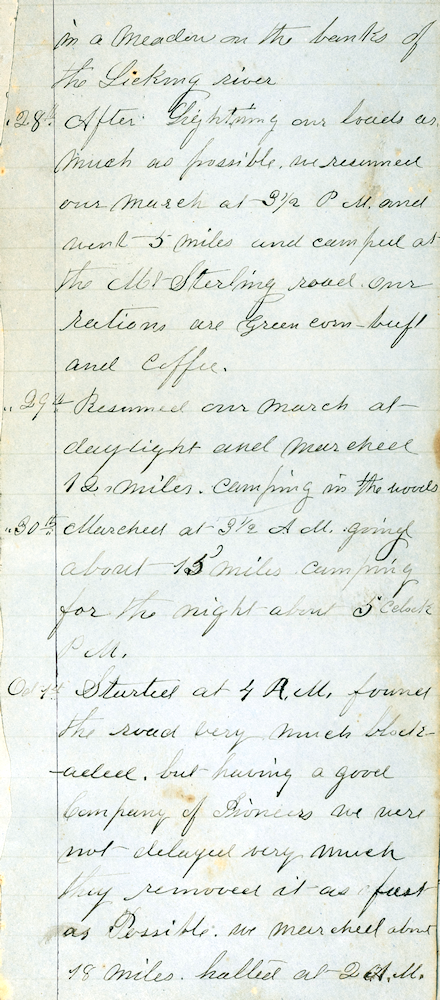 in a Meadow on the banks of
the Licking river
" 28th After Lightning our loads as
Much as possible. we resumed
our march at 3 1/2 P M. and
went 5 miles and camped at
the Mt Sterling road. our
rations are Green corn - buff
and Coffee.
" 29th Resumed our march at
daylight and marched
12 miles. camping in the woods
" 30th Marched at 3 1/2 A M. going
about 15 miles camping
for the night about 5 Oclock
P M.
Oct 1st Started at 4 A. M. found
the road very much block-
-aded. but having a good
Company of Pioneers we were
not delayed very much
they removed it as fast
as Possible. we marched about
18 miles. halted at 2 A. M.